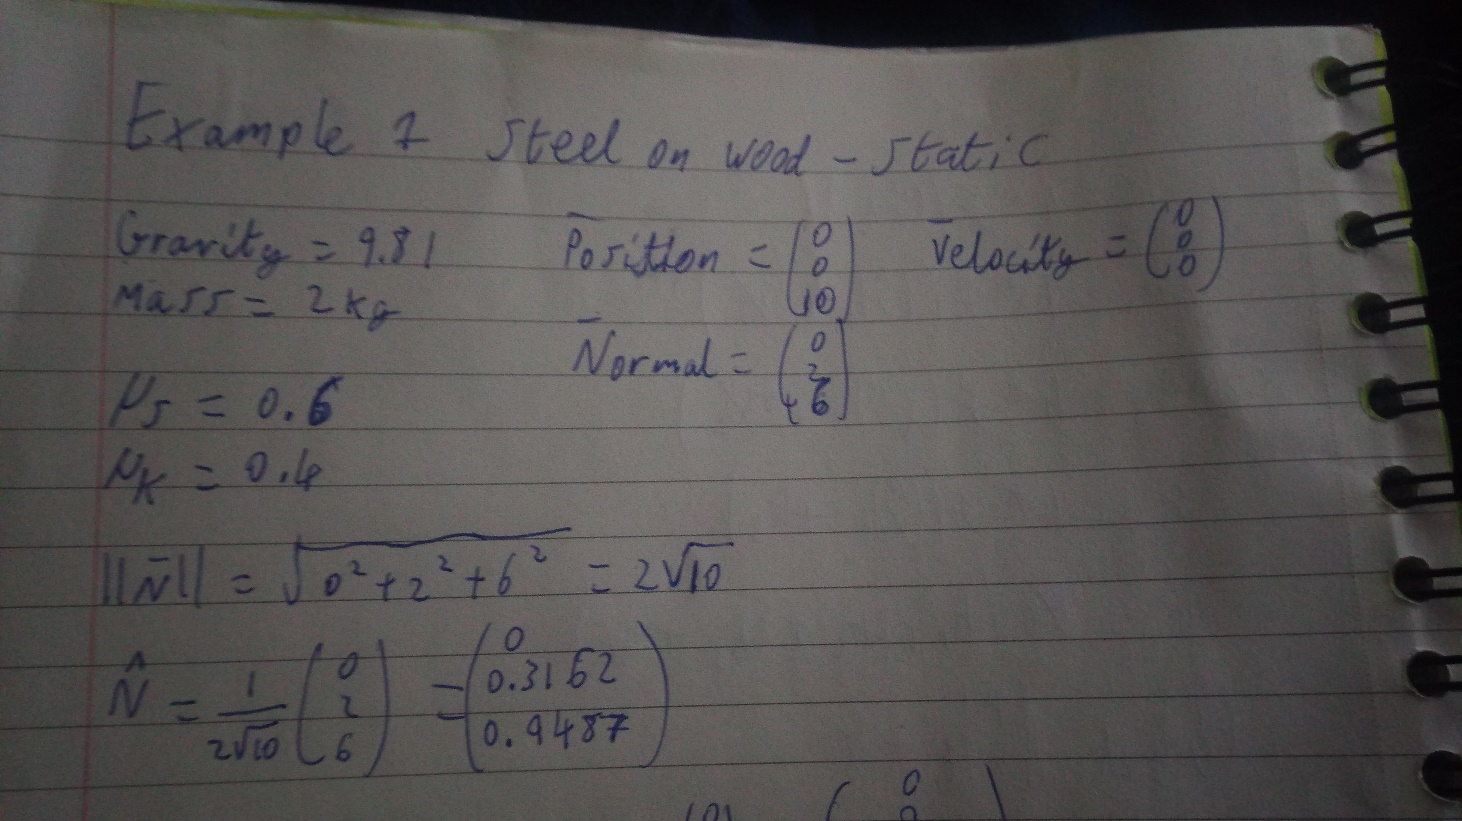 Example 1 Steel on wood - static
Gravity = 9.81 Position = (0 0 10) Velocity = (0 0 0)
Mass = 2kg
Normal = (0 2 6)
μs = 0.6
μk = 0.4
||N̄|| = √0² + 2² + 6² = 2√10
N̂ = 1/2√10 (0 2 6) = (0 0.3162 0.9487)
(0) (0 0